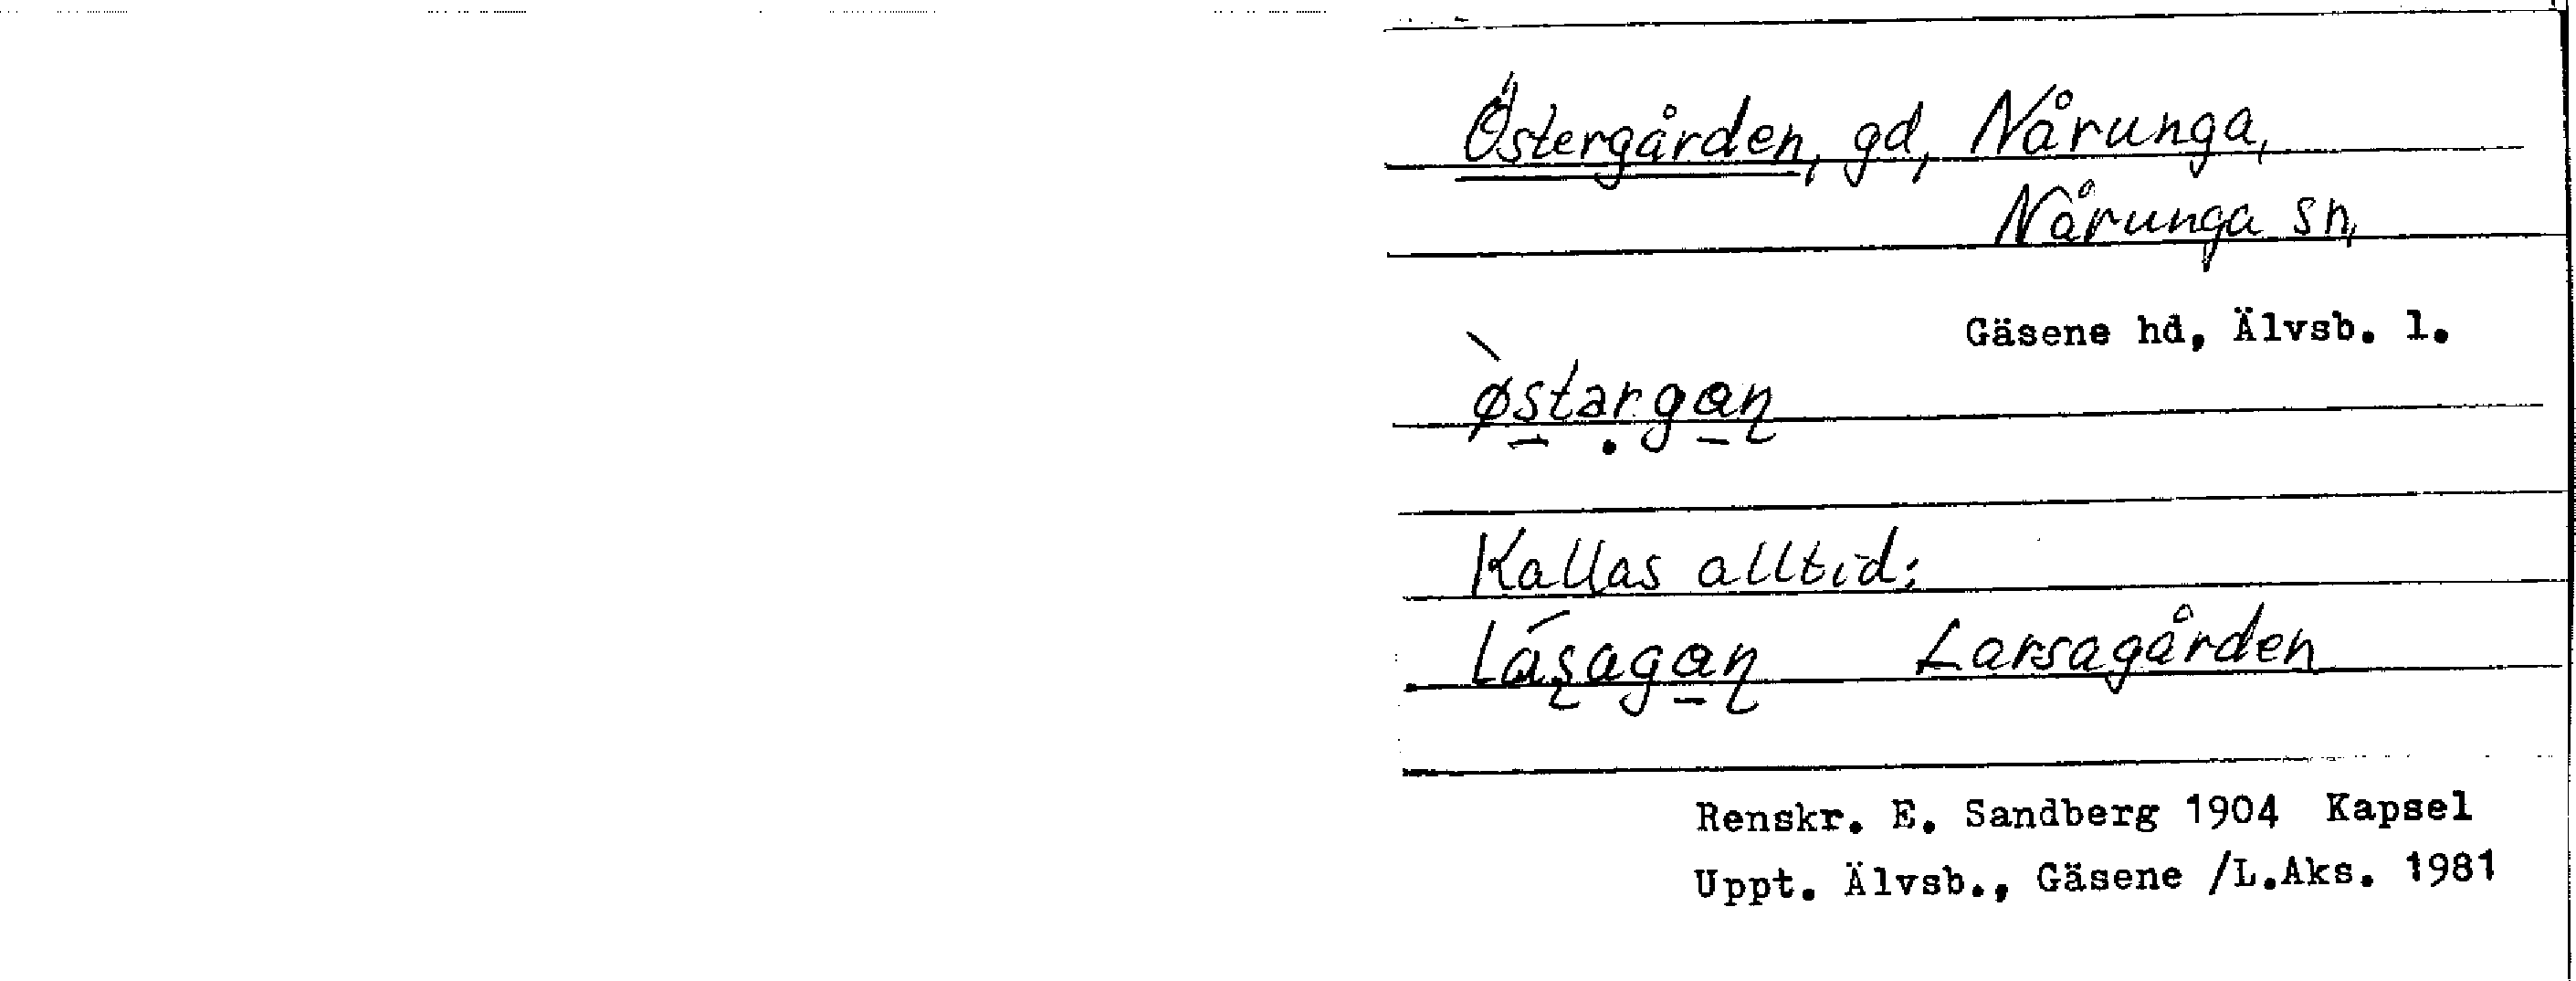 Östergården, gd, Nårunga,
Nårunga sn,
Gäsene hd, Älvsb. l.
ø̀stargan
Kallas alltid:
Lásagan Larsagården
Renskr. E. Sandberg 1904 Kapsel
Uppt. Älvsb., Gäsene /L.Aks. 1981